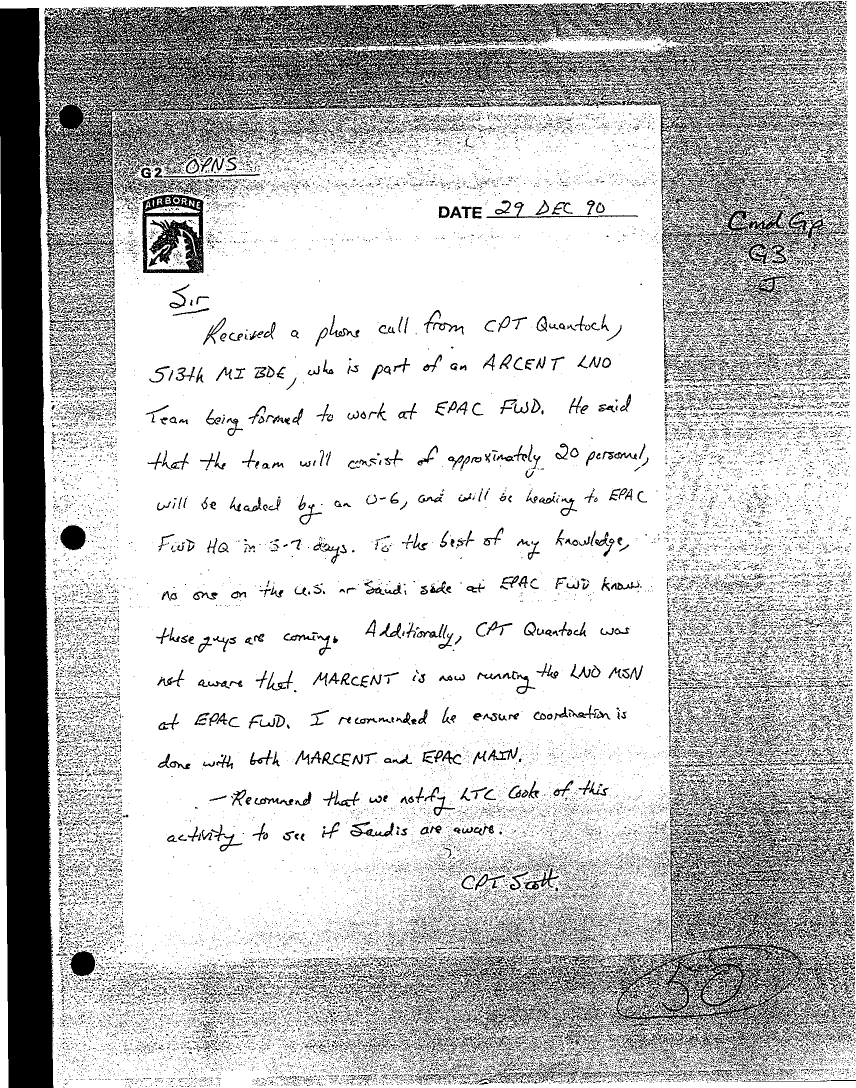 G2 OPNS
AIRBORNE
DATE 29 DEC 90
Cmd Gp
G3
J
Sir
Received a phone call from CPT Quantock,
513th MI BDE, who is part of an ARCENT LNO
Team being formed to work at EPAC FWD. He said
that the team will consist of approximately 20 personnel,
will be headed by an O-6, and will be heading to EPAC
FWD HQ in 5-7 days. To the best of my knowledge,
no one on the U.S. or Saudi side at EPAC FWD knows
these guys are coming. Additionally, CPT Quantock was
not aware that MARCENT is now running the LNO MSN
at EPAC FWD. I recommended he ensure coordination is
done with both MARCENT and EPAC MAIN.
— Recommend that we notify LTC Cooke of this
activity to see if Saudis are aware.
CPT Scott
50